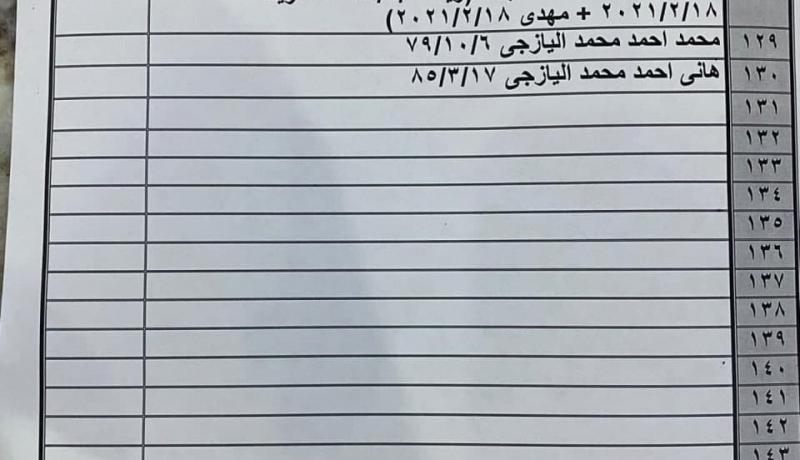 ٢٠٢١/٢/١٨ + مهدى ٢٠٢١/٢/١٨)
١٢٩ محمد احمد محمد اليازجى ٧٩/١٠/٦
١٣٠ هانى احمد محمد اليازجى ٨٥/٣/١٧
١٣١
١٣٢
١٣٣
١٣٤
١٣٥
١٣٦
١٣٧
١٣٨
١٣٩
١٤٠
١٤١
١٤٢
١٤٣